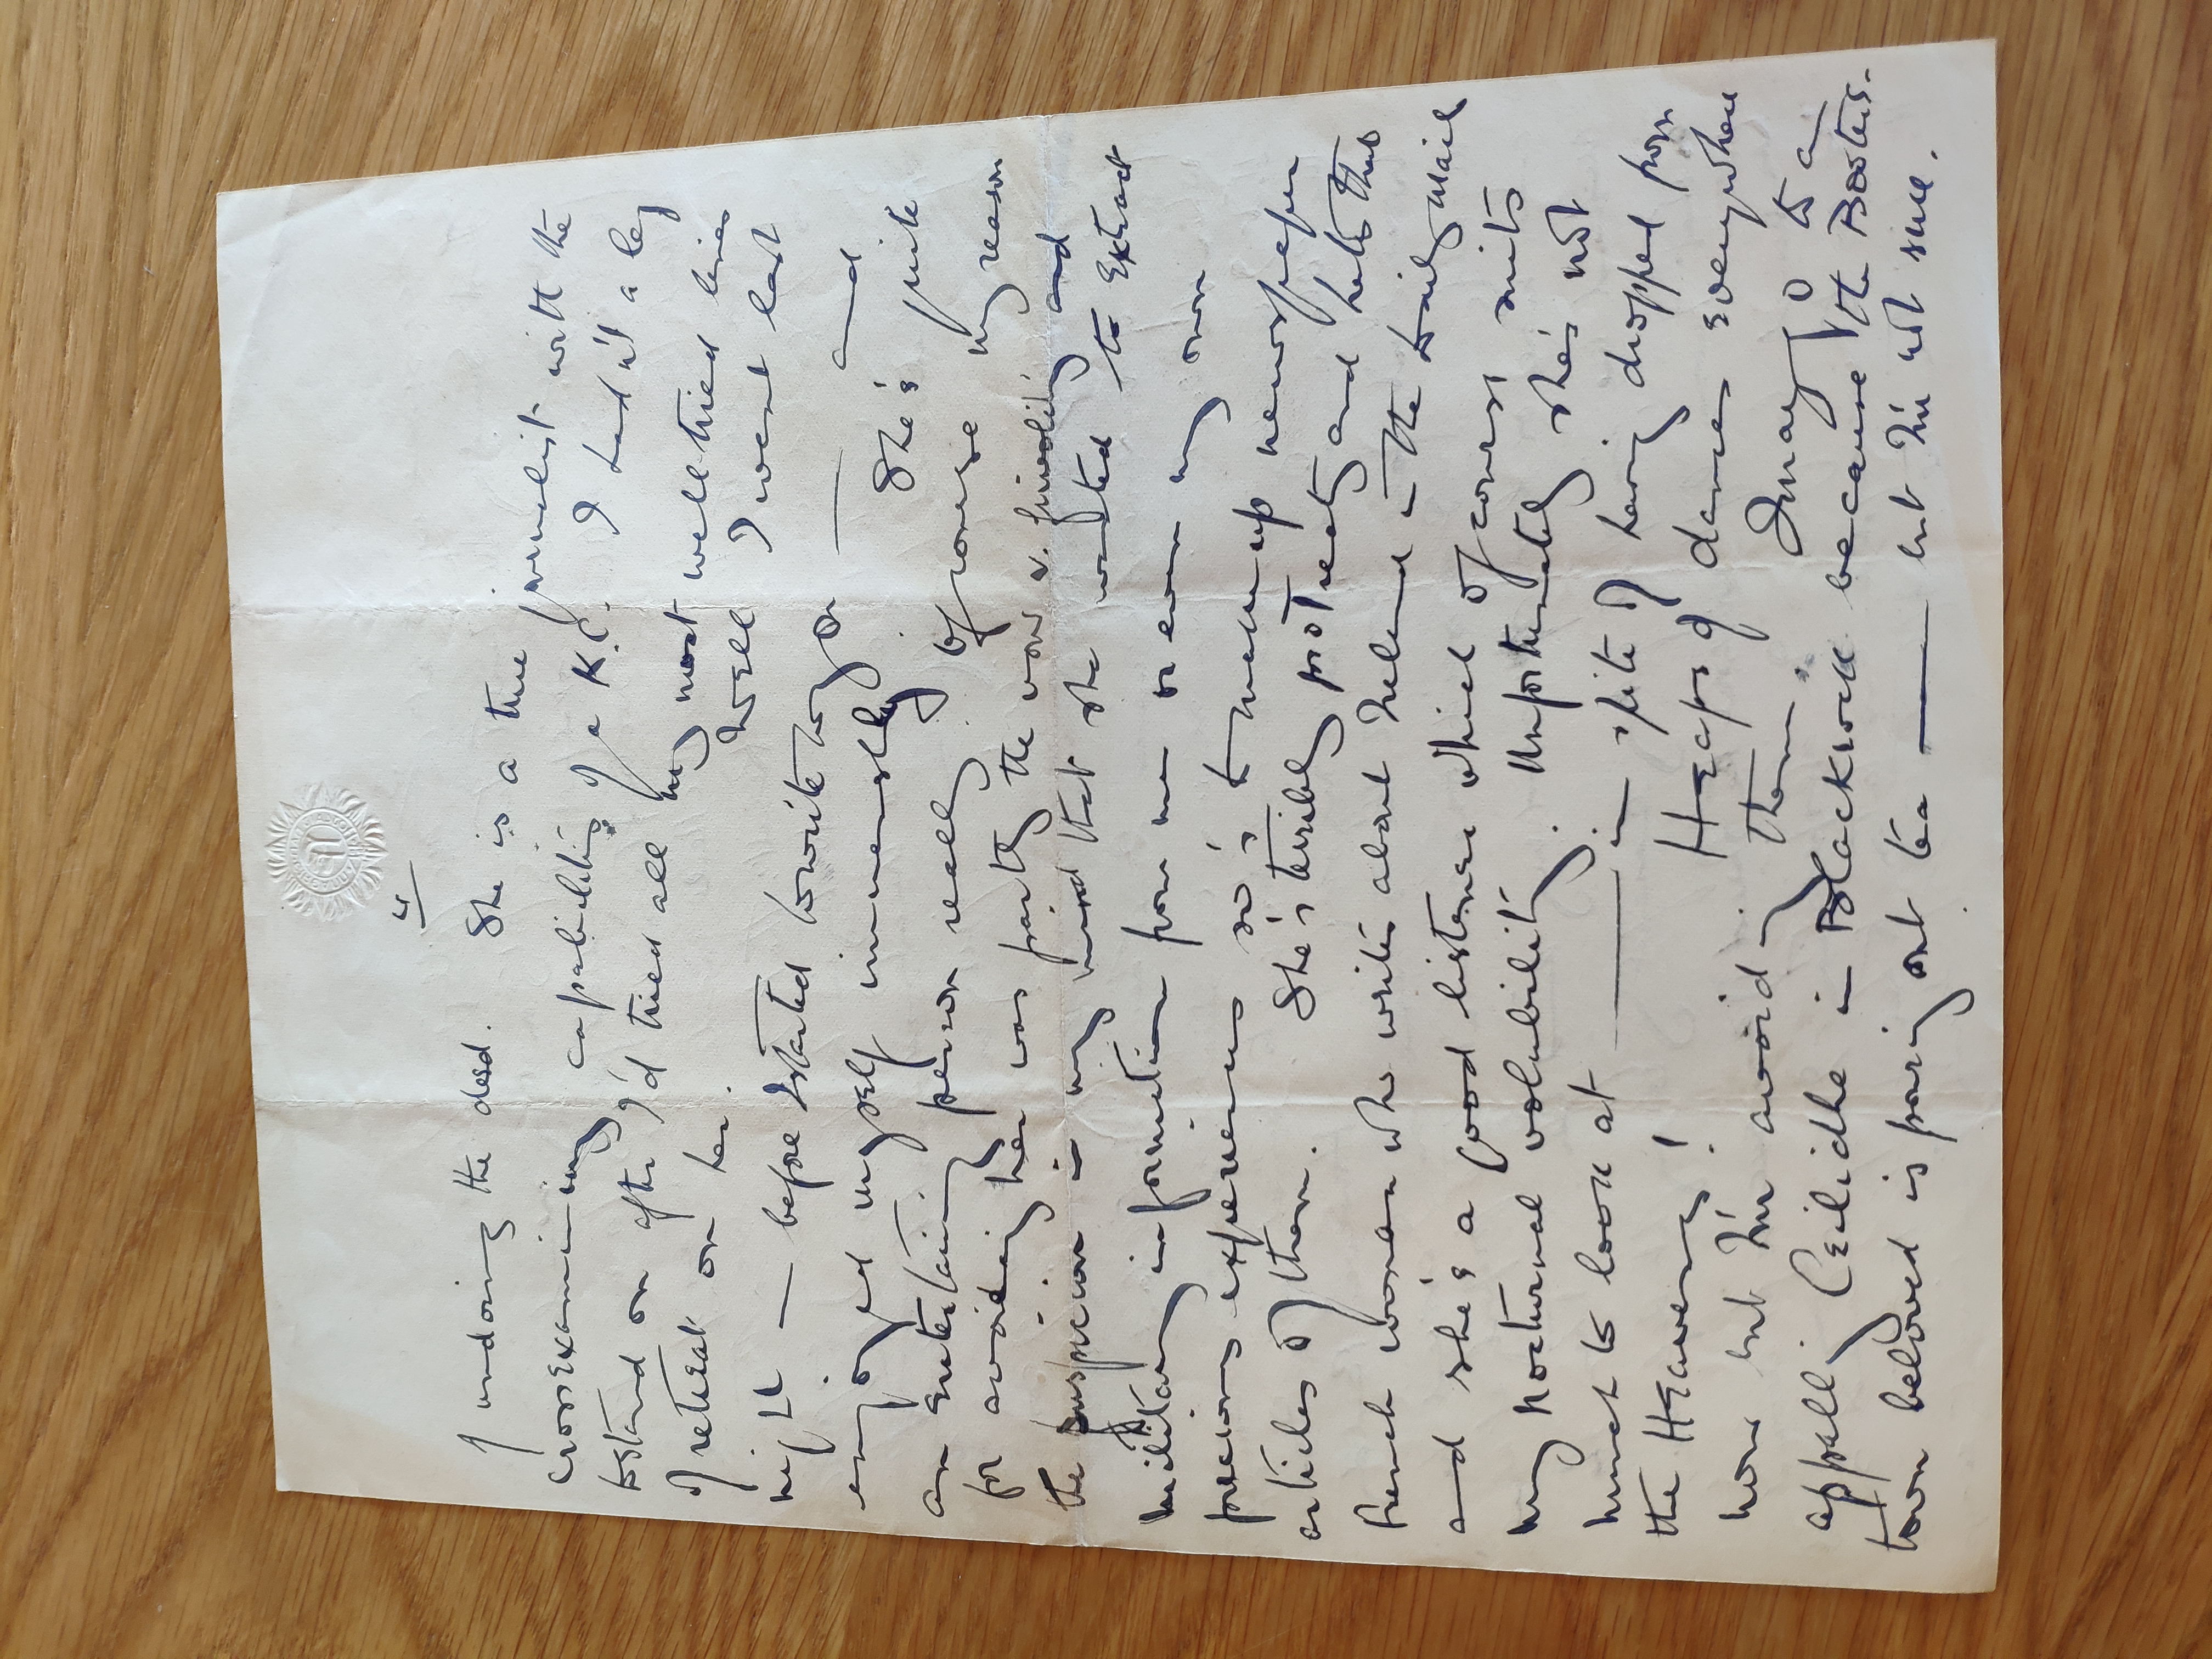 4
of undoing the deed. She is a true journalist with the
cross examining capabilities of a K.C. I hadn't a leg
to stand on after I'd tried all my most well tried lines
of retreat on her. Well I went last
night — before I started to write to you — and
enjoyed myself immensely. She's quite
an entertaining person really of course my reason
for avoiding her was partly the vow v. frivolity and
the suspicion in my mind that she wanted to extract
military information from me or even my own
precious experiences so's to make up newspaper
articles of them. She's terribly protreaty and hates that
French woman who writes about Ireland in the Daily Mail
and she's a good listener which of course suits
my nocturnal volubility. Unfortunately she's not
much to look at — in spite of having dropped from
the Heavens! Heaps of dances everywhere
now but I'm avoiding them. I may go to a
appall. Ceilidhe in Blackrock because the Doctor's
own beloved is pouring out tea — but I'm not sure.